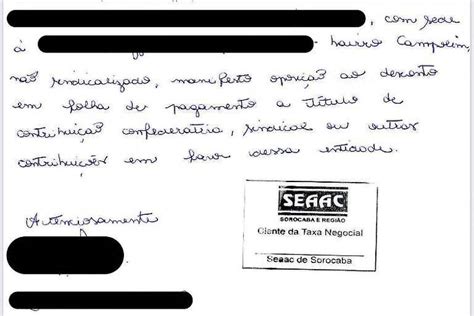 , com sede
à bairro Campolim,
não sindicalizado, manifesto oposição ao desconto
em folha de pagamento a título de
contribuição confederativa, sindical ou outras
contribuições em favor dessa entidade.
Atenciosamente
SEAAC
SOROCABA E REGIÃO
Ciente da Taxa Negocial
Seaac de Sorocaba